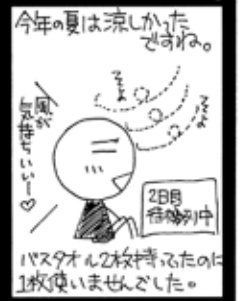 今年の夏は涼しかった
ですね。
そよ
そよ
風が
気持ちいいー♡
2日目
待機列中
バスタオル2枚持ってたのに
1枚使いませんでした。